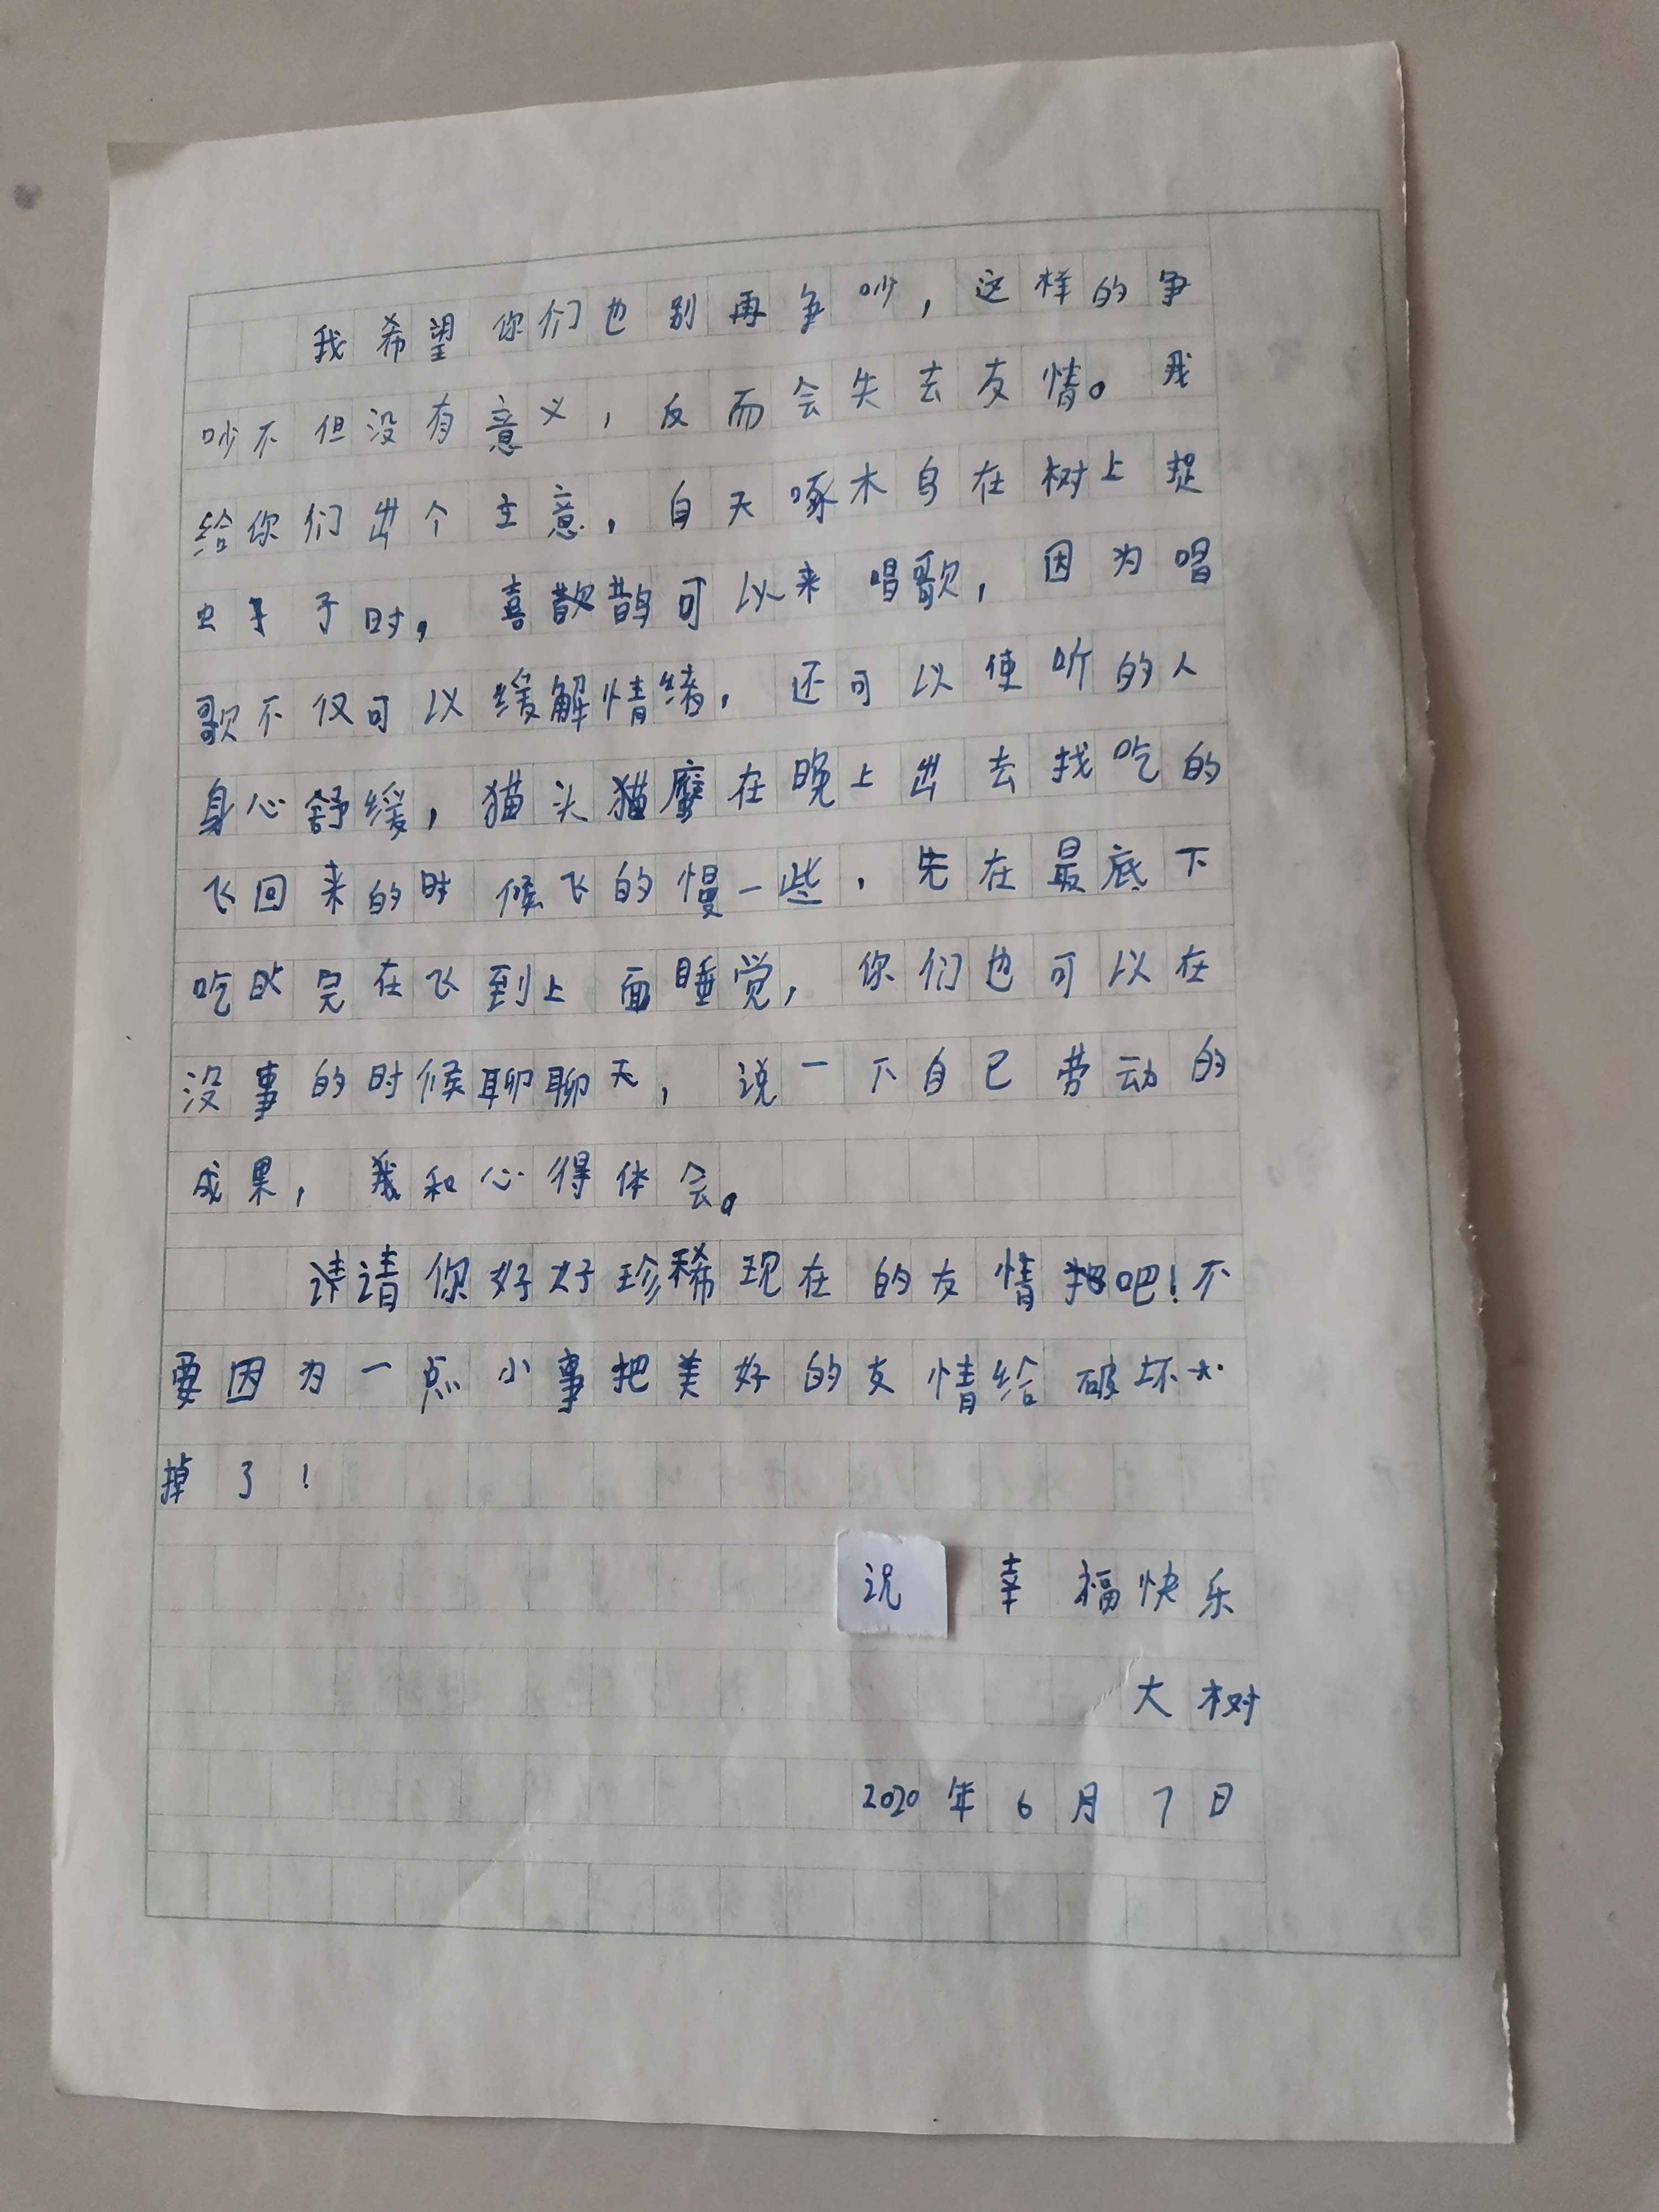 我希望你们也别再争吵，这样的争
吵不但没有意义，反而会失去友情。我
给你们出个主意，白天啄木鸟在树上捉
虫子时，喜鹊可以来唱歌，因为唱
歌不仅可以缓解情绪，还可以使听的人
身心舒缓，猫头鹰在晚上出去找吃的
飞回来的时候飞的慢一些，先在最底下
吃完在飞到上面睡觉，你们也可以在
没事的时候聊聊天，说一下自己劳动的
成果，和心得体会。
请你好好珍稀现在的友情吧！不
要因为一点小事把美好的友情给破坏
掉了！
祝 幸福快乐
大树
2020年6月7日